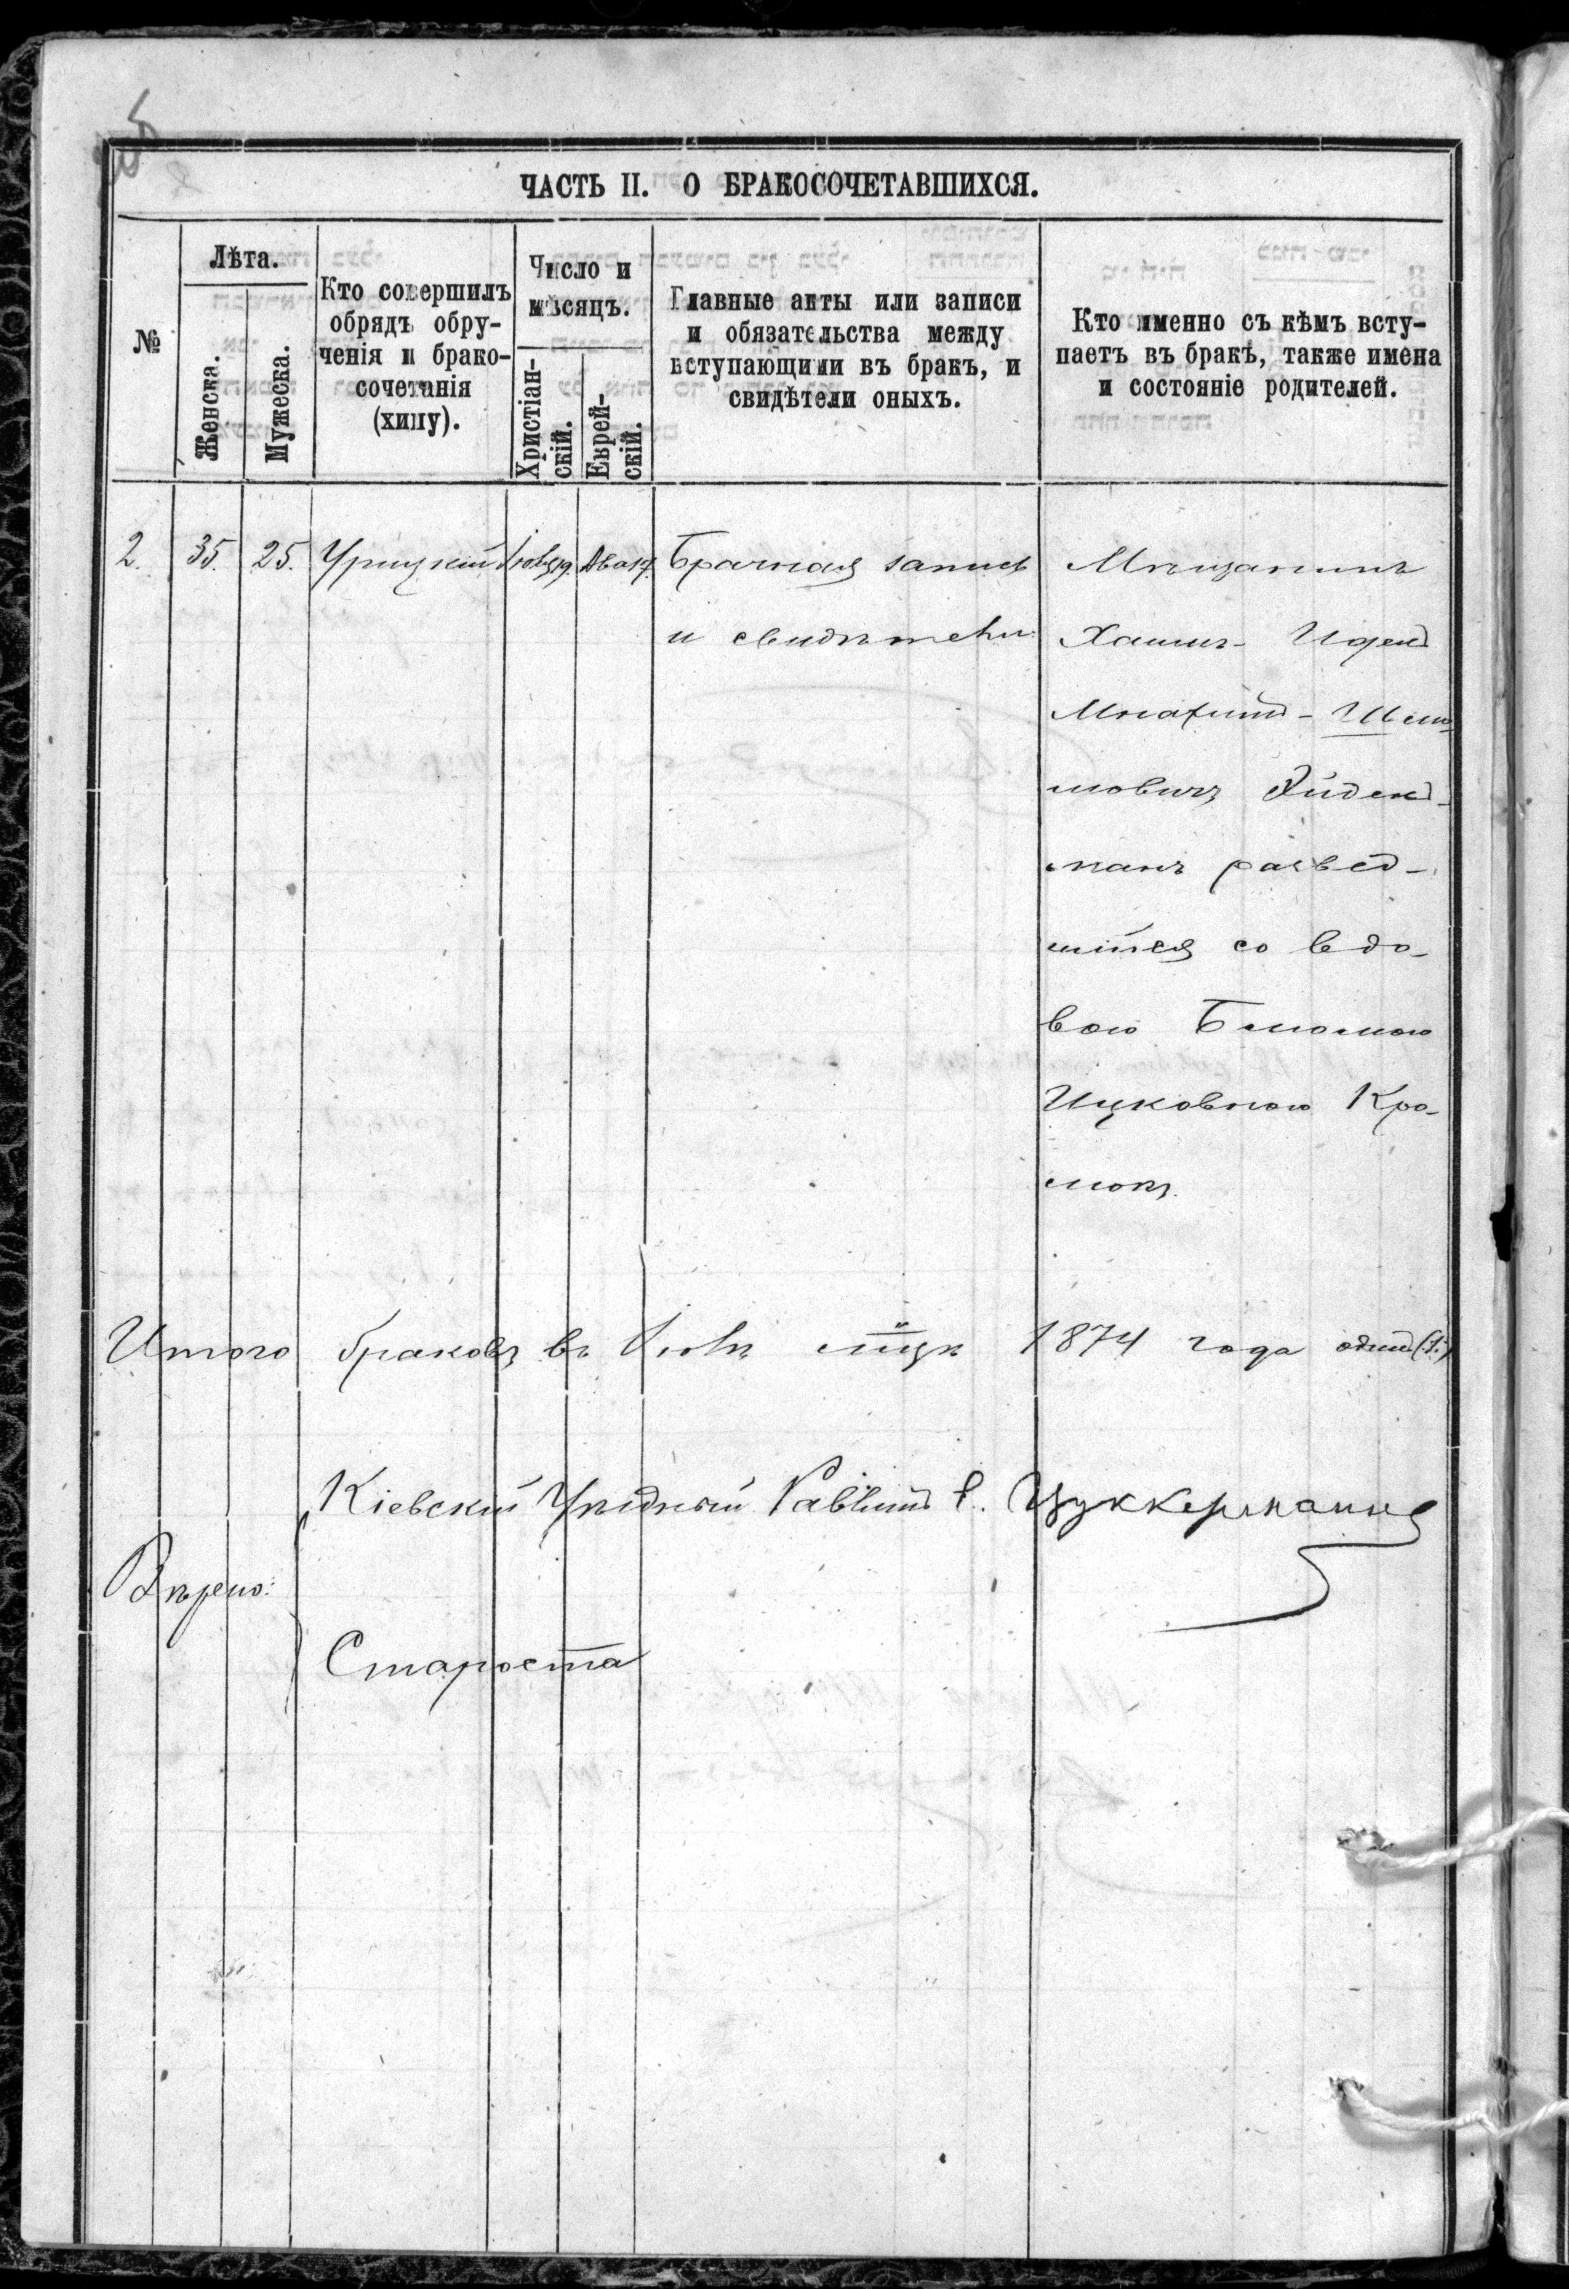 ЧАСТЬ II. О БРАКОСОЧЕТАВШИХСЯ.
№
Лѣта.
Женска.
Мужеска.
Кто совершилъ
обрядъ обру-
ченія и брако-
сочетанія
(хипу).
Число и
мѣсяцъ.
Христіан-
скій.
Еврей-
скій.
Главные акты или записи
и обязательства между
вступающими въ бракъ, и
свидѣтели оныхъ.
Кто именно съ кѣмъ всту-
паетъ въ бракъ, также имена
и состояніе родителей.
2. 35. 25. Урицкій Іюль 19. Ава 17. Брачная запись
и свидѣтели
Мѣщанинъ
Хаимъ-
-
мовичъ
манъ развед-
шійся со вдо-
вою
Ицковною Кро-
мокъ.
Итого браковъ въ Іюлѣ мцѣ 1874 года одинъ (1.)
Кіевскій Уѣздный Раввинъ Е. Цуккерманъ
Вѣрно:
Староста